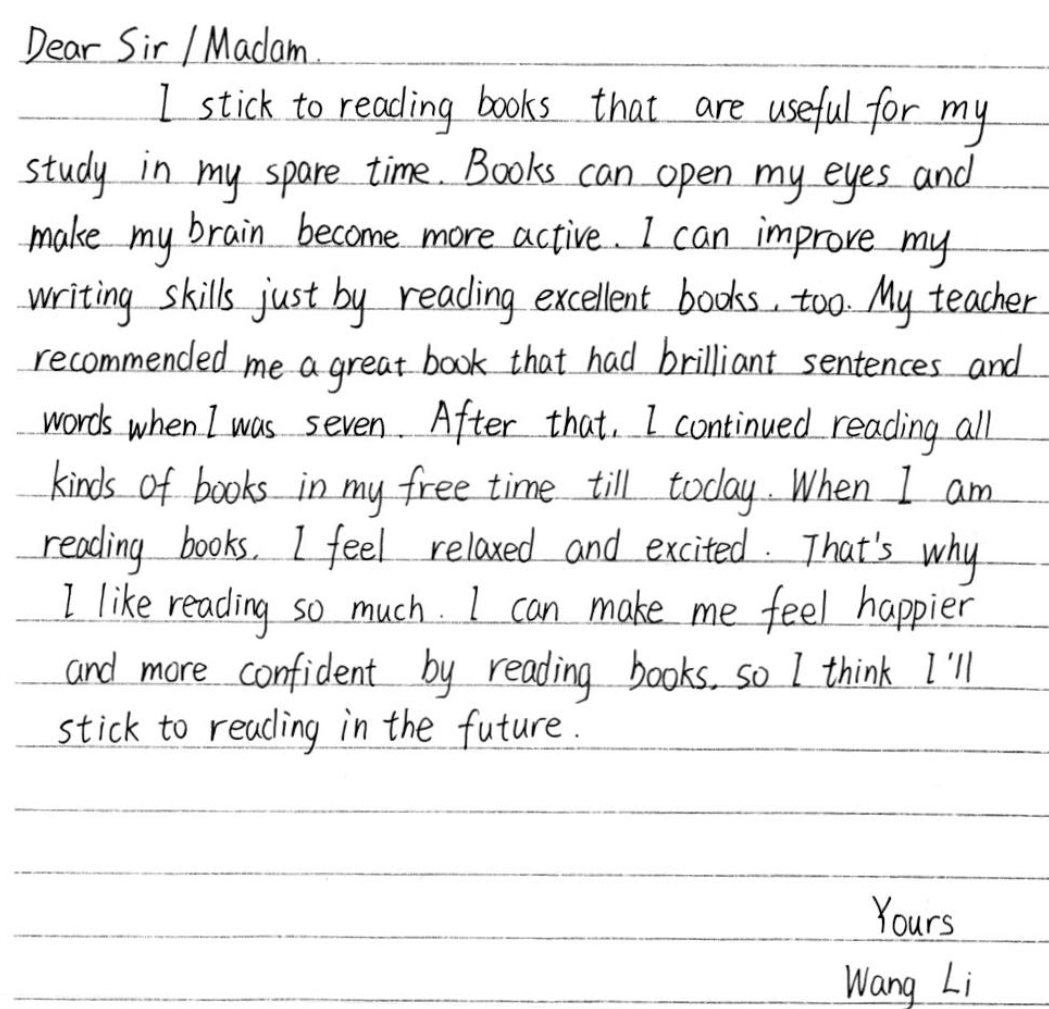 Dear Sir / Madam.
I stick to reading books that are useful for my
study in my spare time. Books can open my eyes and
make my brain become more active. I can improve my
writing skills just by reading excellent books, too. My teacher
recommended me a great book that had brilliant sentences and
words when I was seven. After that, I continued reading all
kinds of books in my free time till today. When I am
reading books, I feel relaxed and excited. That's why
I like reading so much. I can make me feel happier
and more confident by reading books, so I think I'll
stick to reading in the future.
Yours
Wang Li